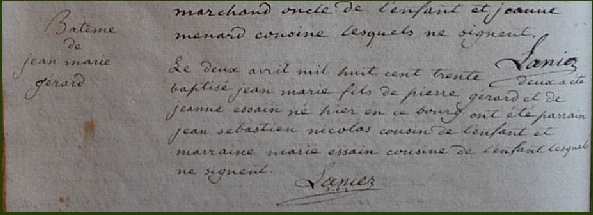 marchand oncle de l'enfant et jeanne
menard cousine lesquels ne signent.
Lanier
Batême
de
jean marie
gerard
Le deux avril mil huit cent trente deux a été
baptisé jean marie fils de pierre gerard et de
jeanne essain né hier en ce bourg ont été parrain
jean sebastien nicolas cousin de l'enfant et
marraine marie essain cousine de l'enfant lesquels
ne signent.
Lanier